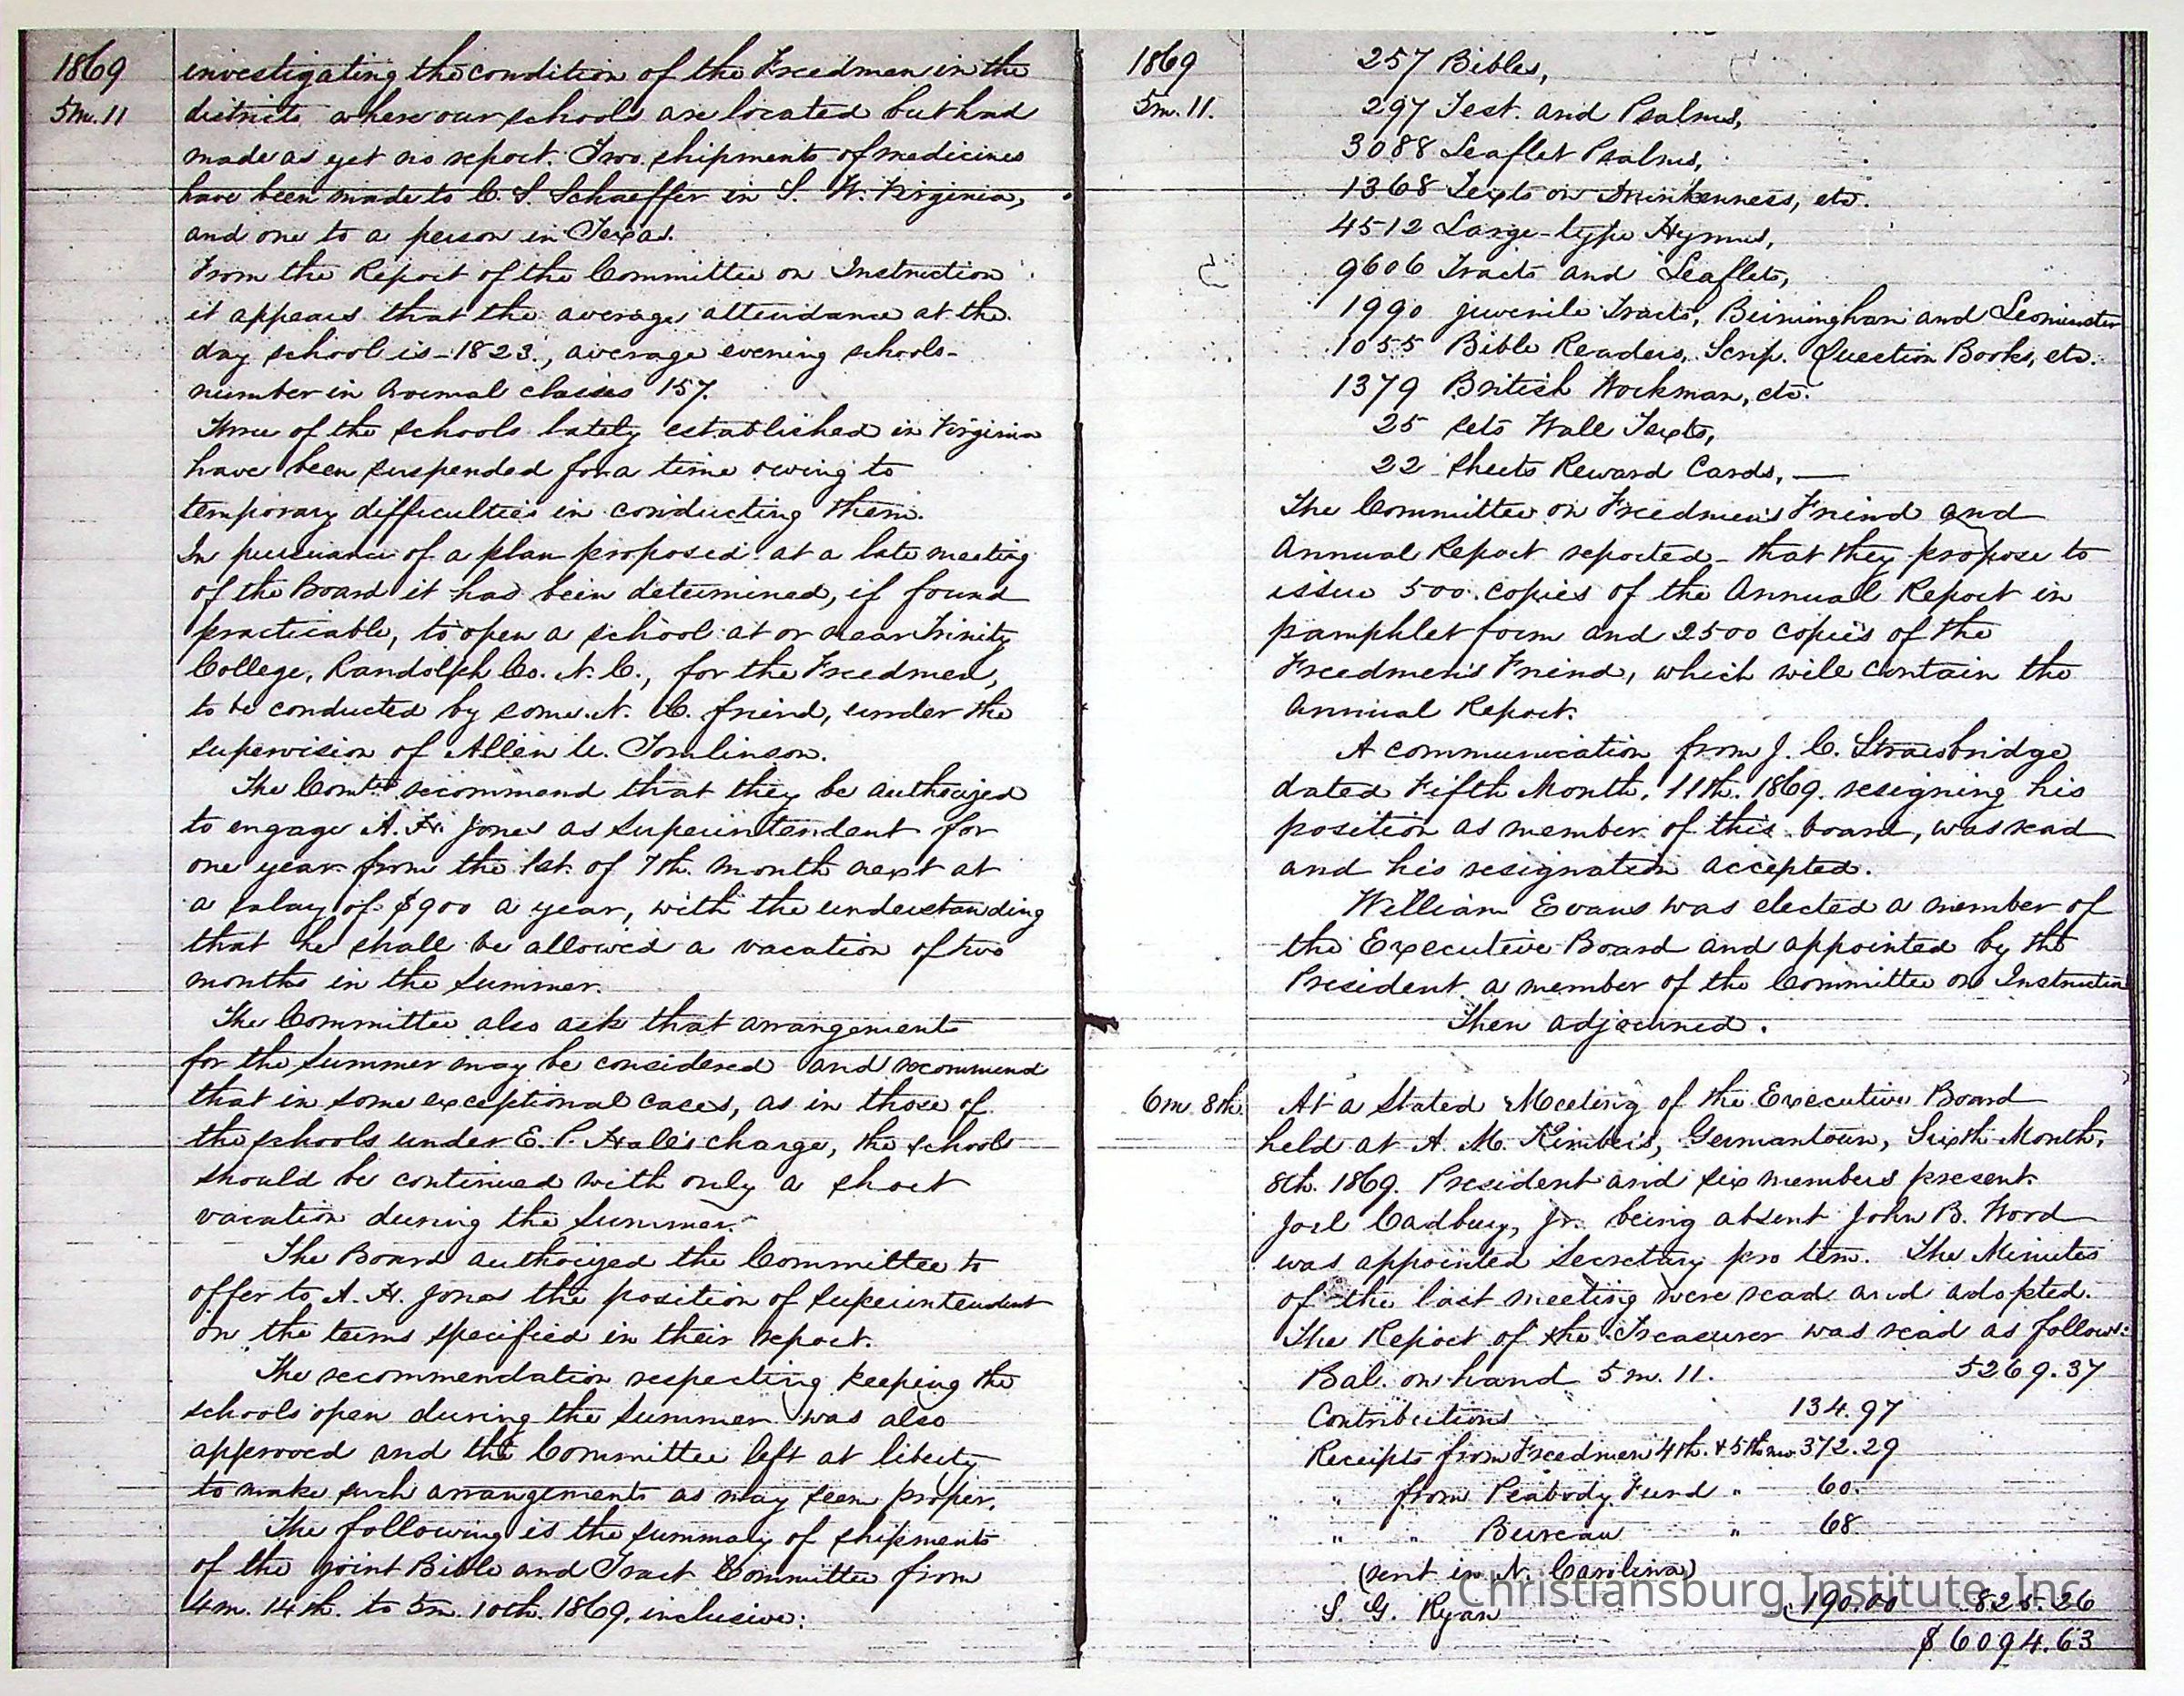 1869
5m. 11
investigating the condition of the Freedmen in the
districts where our schools are located but had
made as yet no report. Two shipments of medicines
have been made to C. S. Schaeffer in S. W. Virginia,
and one to a person in Texas.
From the Report of the Committee on Instruction
it appears that the average attendance at the
day school is - 1823., average evening schools -
number in normal classes 157.
Three of the schools lately established in Virginia
have been suspended for a time owing to
temporary difficulties in conducting them.
In pursuance of a plan proposed at a late meeting
of the Board it had been determined, if found
practicable, to open a school at or near Trinity
College, Randolph Co. N. C., for the Freedmen,
to be conducted by some N. C. friend, under the
supervision of Allen U. Tomlinson.
The Comtee recommend that they be authorized
to engage A. H. Jones as Superintendent for
one year from the 1st. of 7th. month next at
a salary of $900 a year, with the understanding
that he shall be allowed a vacation of two
months in the summer.
The Committee also ask that arrangements
for the summer may be considered and recommend
that in some exceptional cases, as in those of
the schools under E. P. Hall's charge, the schools
should be continued with only a short
vacation during the summer.
The Board authorized the Committee to
offer to A. H. Jones the position of Superintendent
on the terms specified in their report.
The recommendation respecting keeping the
schools open during the summer was also
approved and the Committee left at liberty
to make such arrangements as may seem proper.
The following is the summary of shipments
of the joint Bible and Tract Committee from
4m. 14th. to 5m. 10th. 1869, inclusive:
1869
5m. 11.
257 Bibles,
297 Test. and Psalms,
3088 Leaflet Psalms,
1368 Texts on Drunkenness, etc.
4512 Large-type Hymns,
9606 Tracts and Leaflets,
1990 juvenile Tracts, Birmingham and Leominster
1055 Bible Readers, Scrip. Question Books, etc.
1379 British Workman, etc.
25 sets Wall Texts,
22 sheets Reward Cards, —
The Committee on Freedmen's Friend and
Annual Report reported - that they propose to
issue 500 copies of the Annual Report in
pamphlet form and 2500 copies of the
Freedmen's Friend, which will contain the
Annual Report.
A communication from J. C. Strawbridge
dated Fifth Month, 11th. 1869. resigning his
position as member of this board, was read
and his resignation accepted.
William Evans was elected a member of
the Executive Board and appointed by the
President a member of the Committee on Instruction
Then adjourned.
6m. 8th.
At a Stated Meeting of the Executive Board
held at A. M. Kimber's, Germantown, Sixth Month,
8th. 1869. President and six members present.
Joel Cadbury, Jr. being absent John B. Wood
was appointed Secretary pro tem. The Minutes
of the last meeting were read and adopted.
The Report of the Treasurer was read as follows:
Bal. on hand 5m. 11. 5269.37
Contributions 134.97
Receipts from Freedmen 4th. & 5th mo. 372.29
" from Peabody Fund " 60.
" " Bureau " 68
(rent in N. Carolina)
S. G. Ryan 190.00 825.26
$6094.63
Christiansburg Institute, Inc.